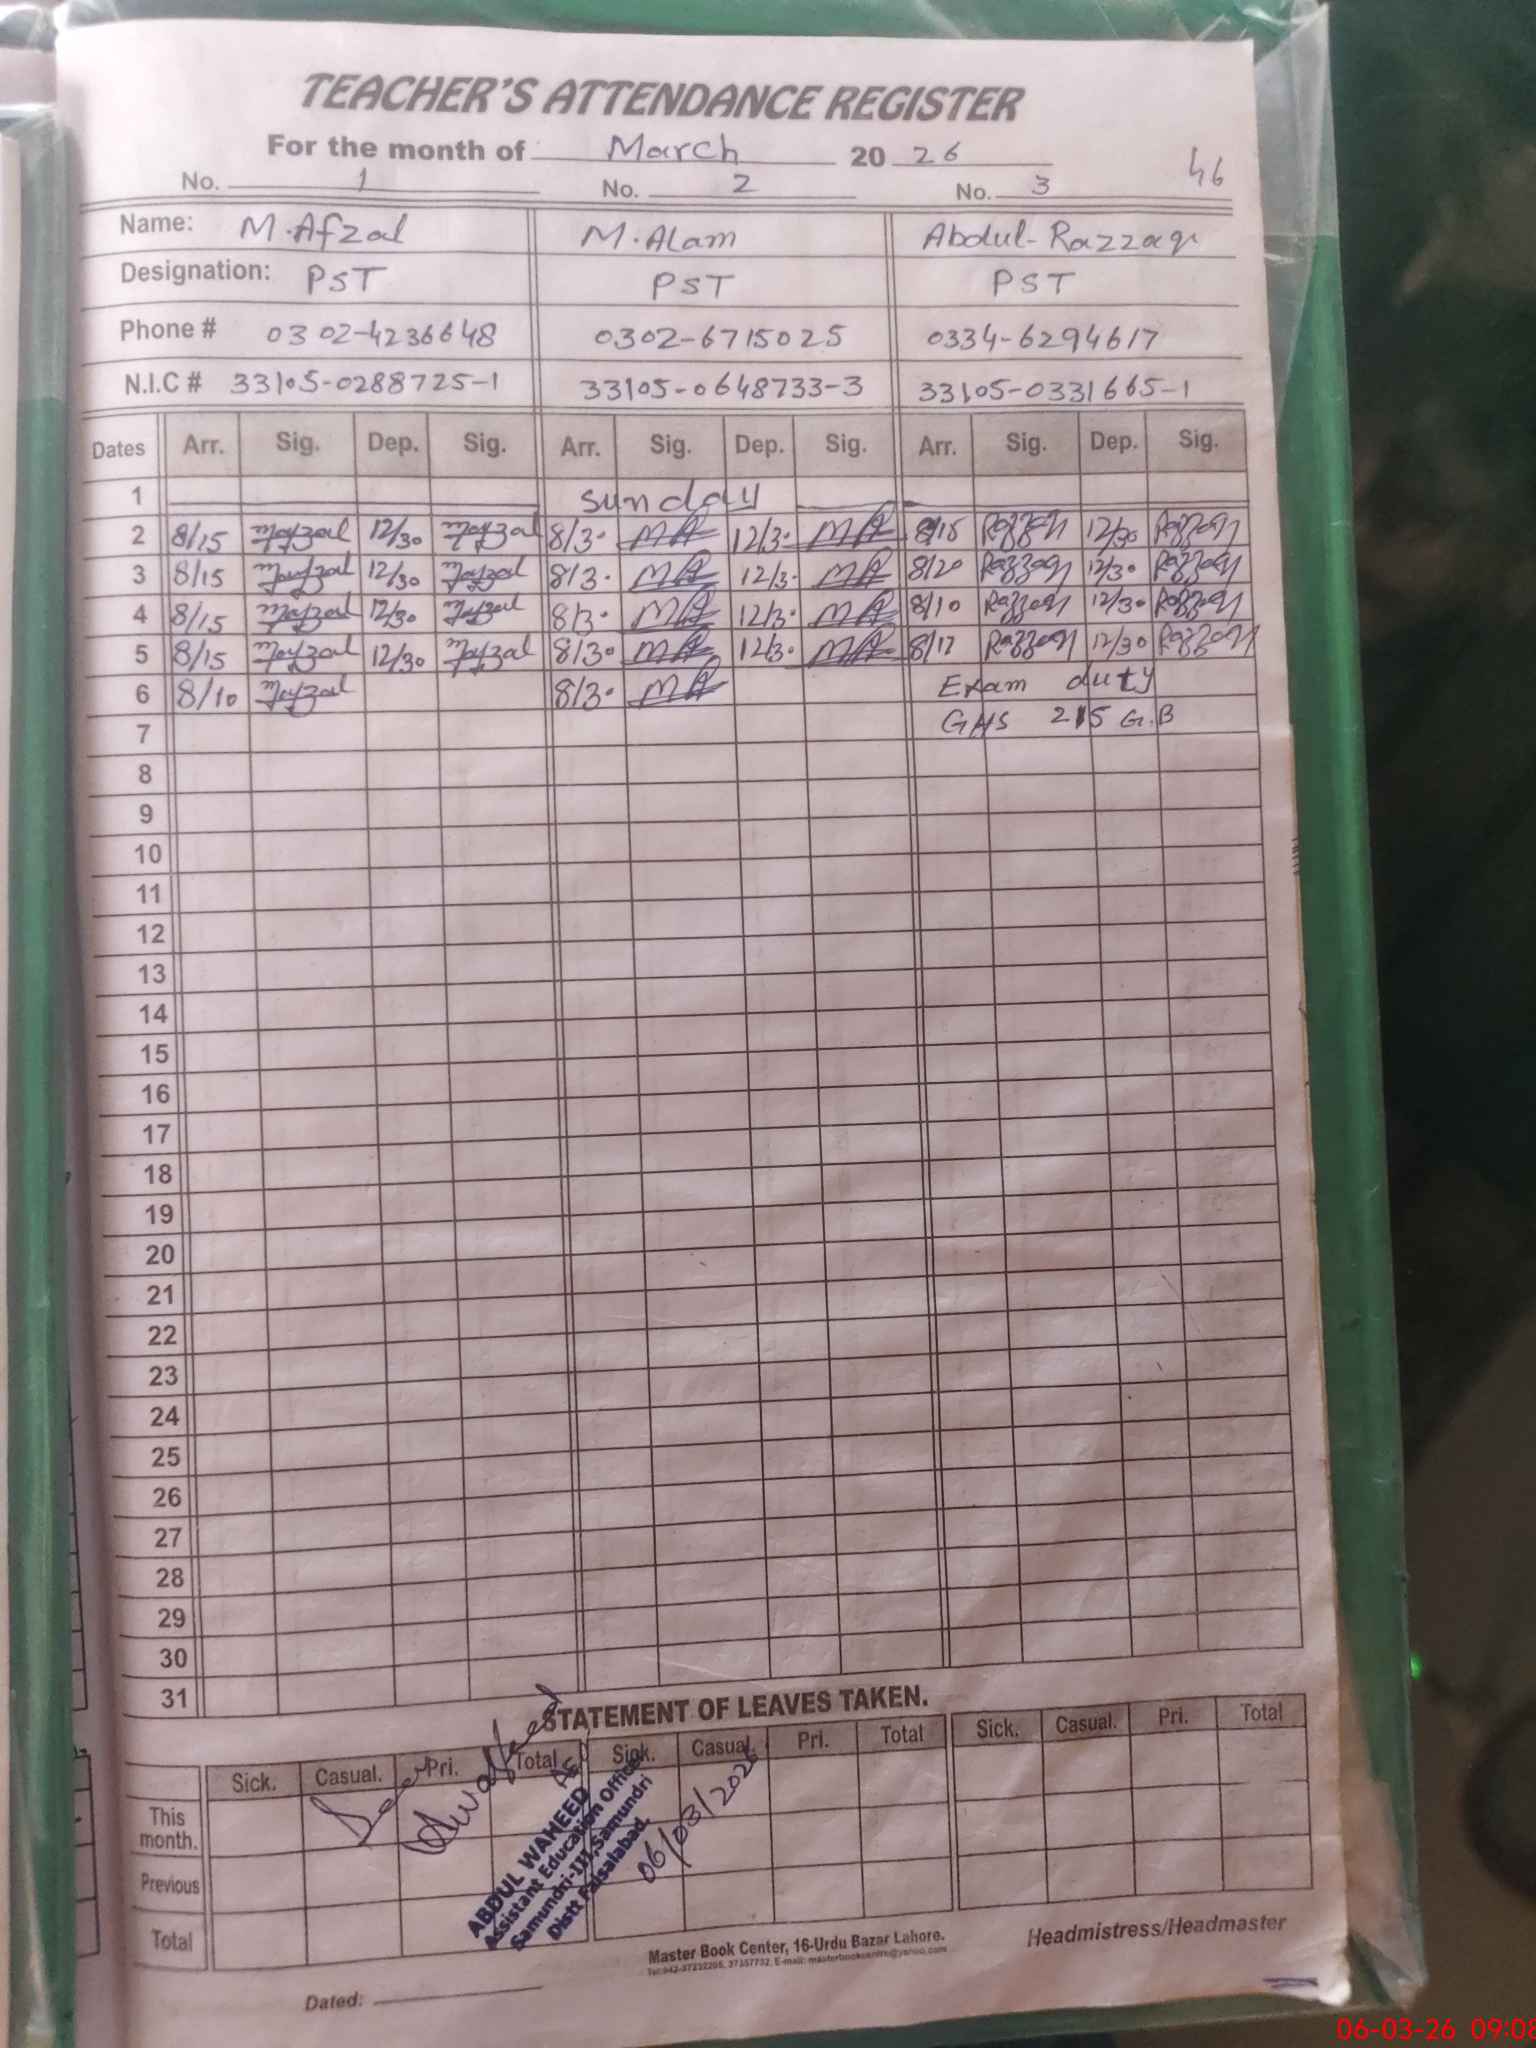 TEACHER'S ATTENDANCE REGISTER
For the month of March 20 26
46
No. 1 No. 2 No. 3
Name: M.Afzal M.Alam Abdul-Razzaq
Designation: PST PST PST
Phone # 0302-4236648 0302-6715025 0334-6294617
N.I.C # 33105-0288725-1 33105-0648733-3 33105-0331665-1
Dates Arr. Sig. Dep. Sig. Arr. Sig. Dep. Sig. Arr. Sig. Dep. Sig.
1 Sunday
2 8/15 Mafzal 12/30 Mafzal 8/30 MA 12/30 MA 8/18 Razzaq 12/30 Razzaq
3 8/15 Mafzal 12/30 Mafzal 8/30 MA 12/30 MA 8/20 Razzaq 12/30 Razzaq
4 8/15 Mafzal 12/30 Mafzal 8/30 MA 12/30 MA 8/10 Razzaq 12/30 Razzaq
5 8/15 Mafzal 12/30 Mafzal 8/30 MA 12/30 MA 8/12 Razzaq 12/30 Razzaq
6 8/10 Mafzal 8/30 MA Exam duty
7 GHS 215 G.B
8
9
10
11
12
13
14
15
16
17
18
19
20
21
22
23
24
25
26
27
28
29
30
31
STATEMENT OF LEAVES TAKEN.
Sick. Casual. Pri. Total Sick. Casual. Pri. Total Sick. Casual. Pri. Total
This month.
Previous
Total
Seen
AEO
ABDUL WAHEED
Assistant Education Officer
Samundri-III, Samundri
Distt Faisalabad.
06/03/2026
Master Book Center, 16-Urdu Bazar Lahore.
Headmistress/Headmaster
Dated:
06-03-26 09:08